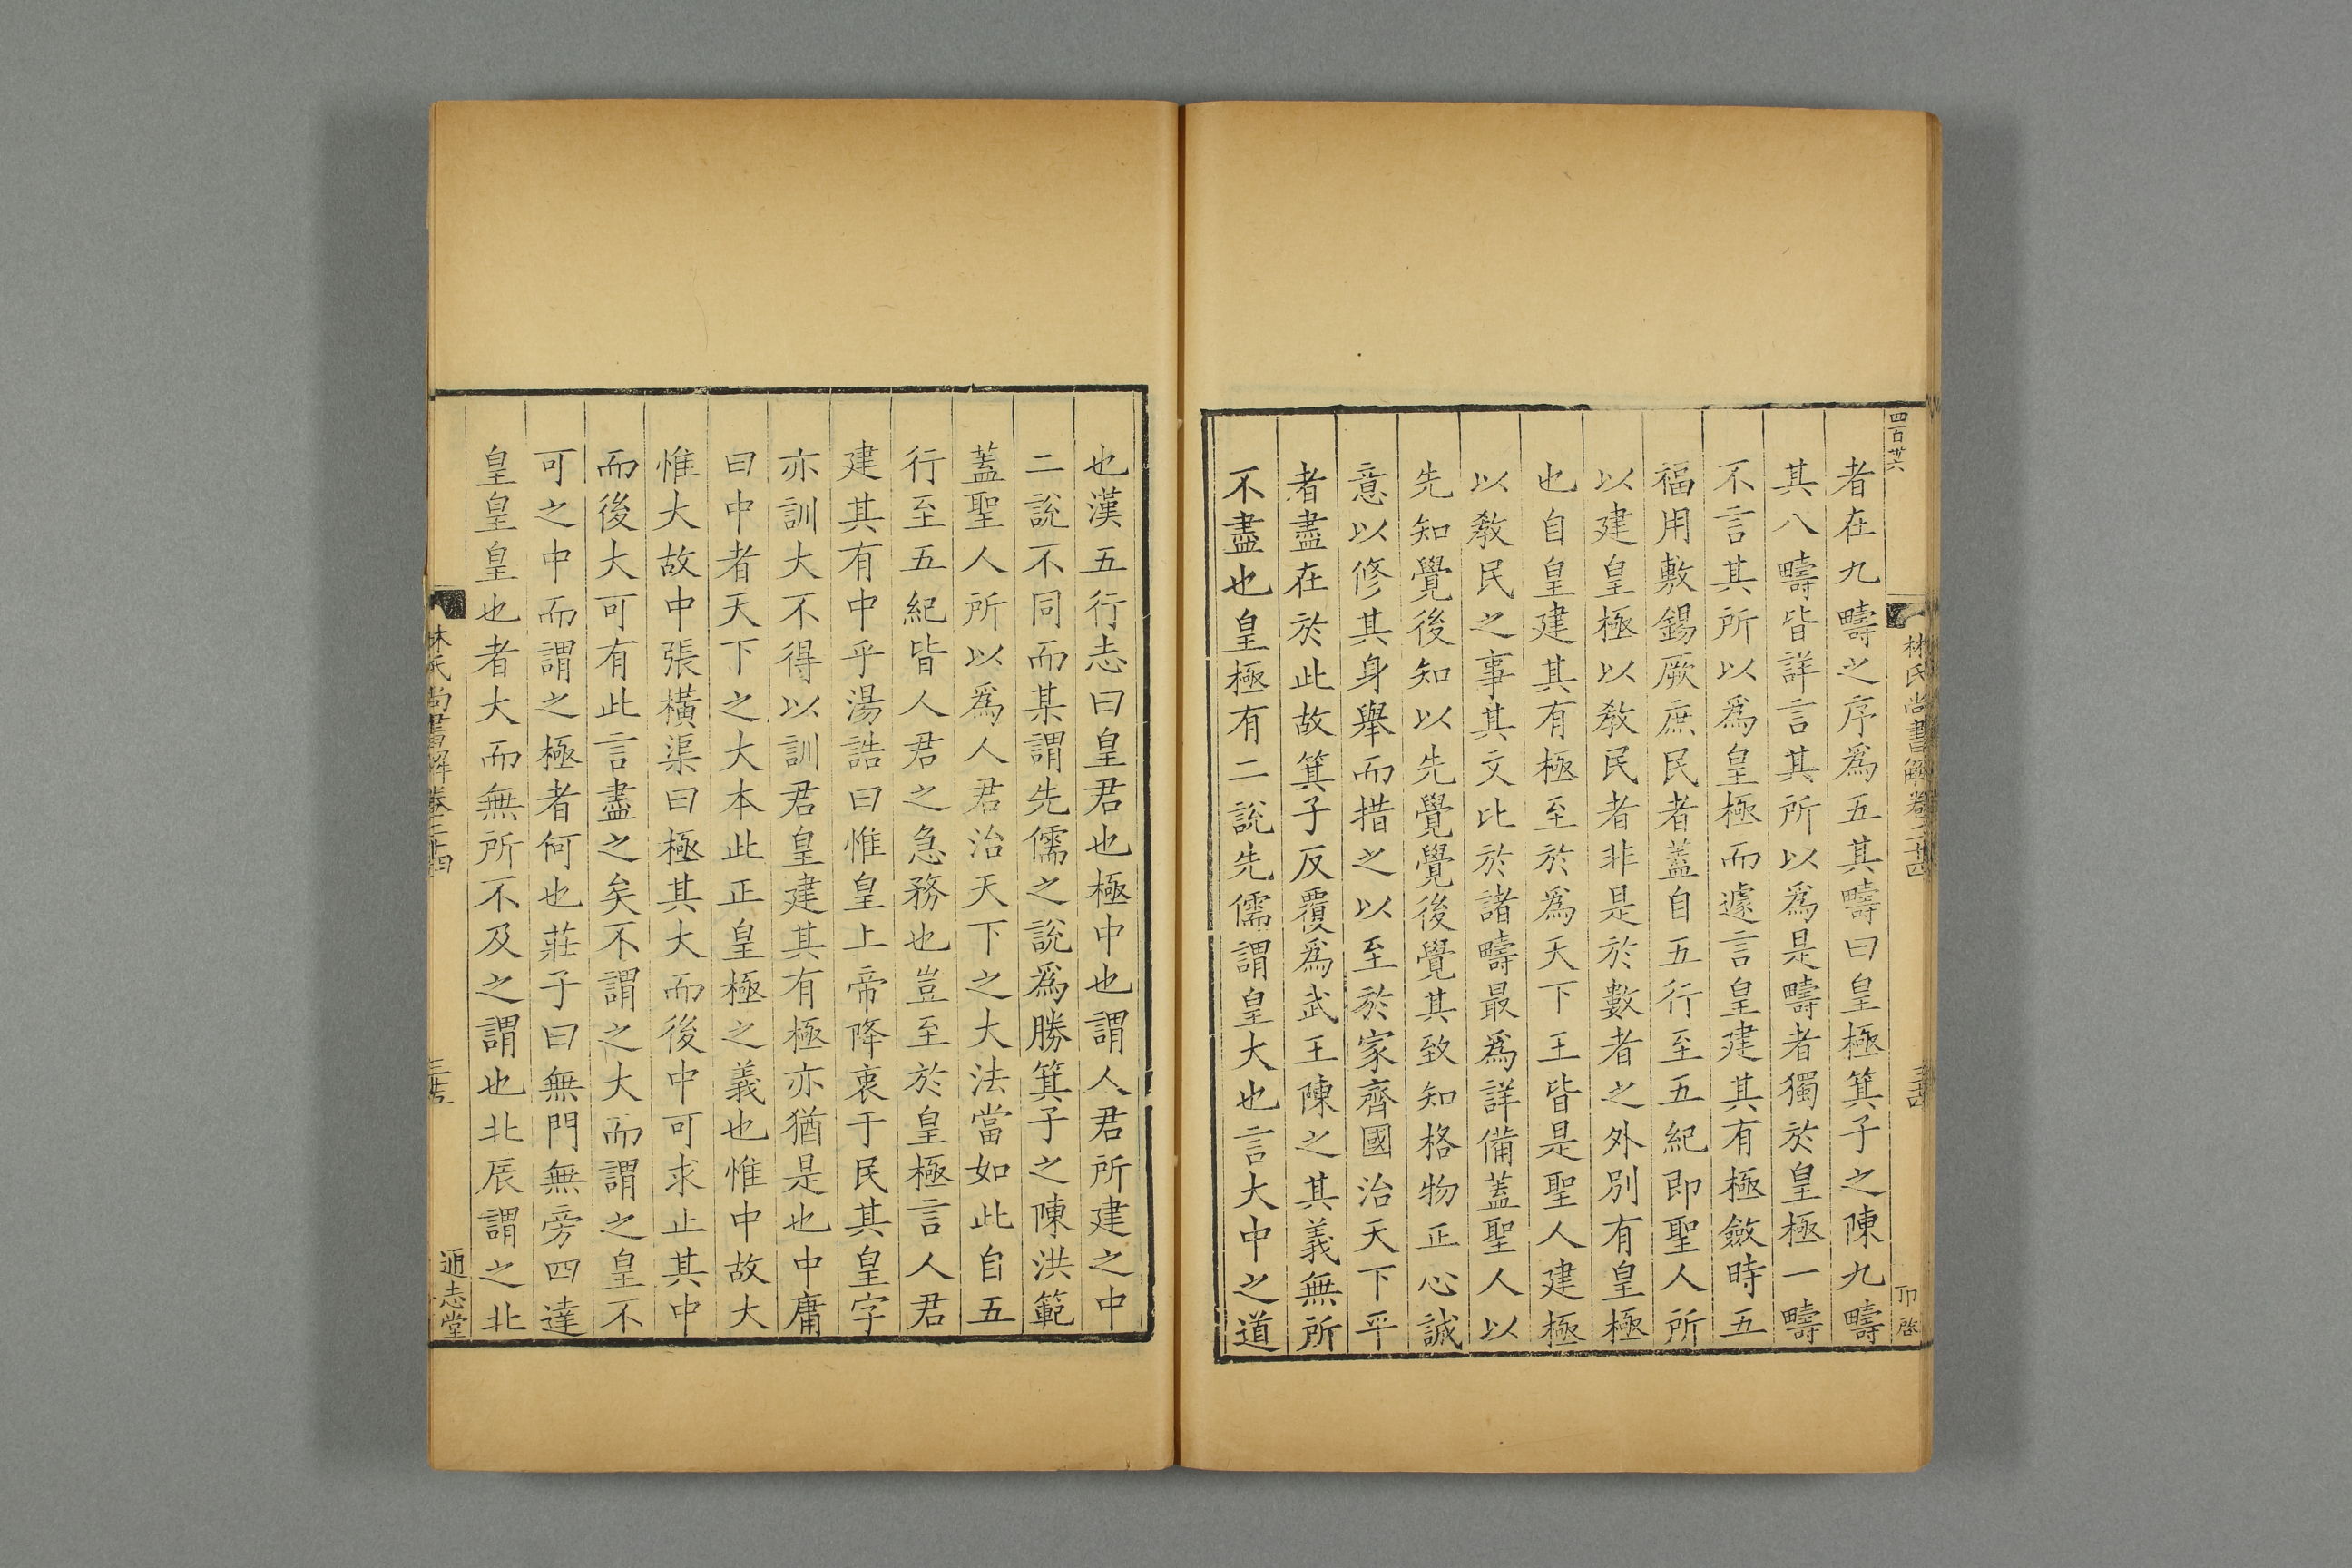 四百廿六
林氏尚書解卷二十四
卬啓
者在九疇之序爲五其疇曰皇極箕子之陳九疇
其八疇皆詳言其所以爲是疇者獨於皇極一疇
不言其所以爲皇極而遽言皇建其有極斂時五
福用敷錫厥庶民者蓋自五行至五紀即聖人所
以建皇極以敎民者非是於數者之外別有皇極
也自皇建其有極至於爲天下王皆是聖人建極
以敎民之事其文比於諸疇最爲詳備蓋聖人以
先知覺後知以先覺覺後覺其致知格物正心誠
意以修其身舉而措之以至於家齊國治天下平
者盡在於此故箕子反覆爲武王陳之其義無所
不盡也皇極有二說先儒謂皇大也言大中之道
也漢五行志曰皇君也極中也謂人君所建之中
二說不同而某謂先儒之說爲勝箕子之陳洪範
蓋聖人所以爲人君治天下之大法當如此自五
行至五紀皆人君之急務也豈至於皇極言人君
建其有中乎湯誥曰惟皇上帝降衷于民其皇字
亦訓大不得以訓君皇建其有極亦猶是也中庸
曰中者天下之大本此正皇極之義也惟中故大
惟大故中張橫渠曰極其大而後中可求止其中
而後大可有此言盡之矣不謂之大而謂之皇不
可之中而謂之極者何也莊子曰無門無旁四達
皇皇皇也者大而無所不及之謂也北辰謂之北
林氏尚書解卷二十四
通志堂